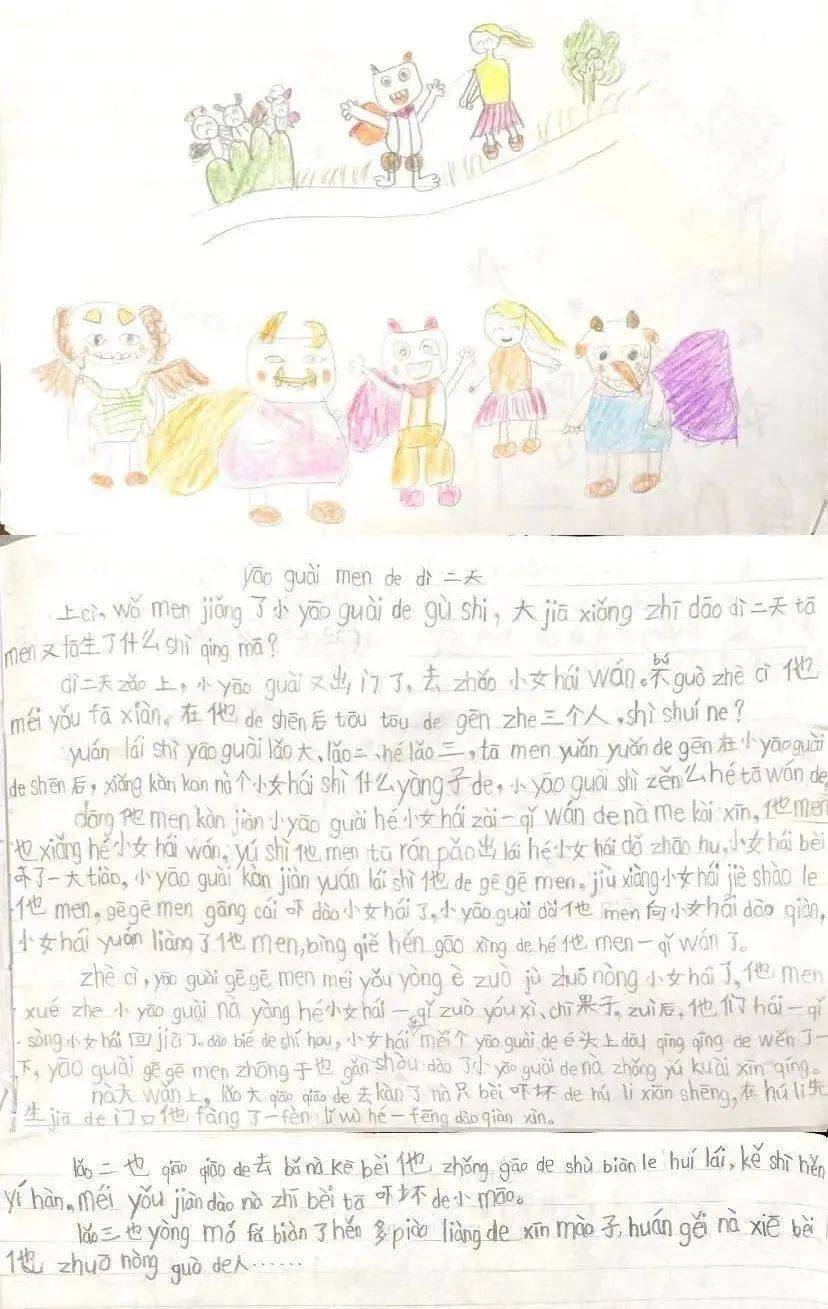 yāo guài men de dì 二天
上cì、wǒ men jiǎng 了小 yāo guài de gù shi, 大 jiā xiǎng zhī dāo dì 二天 tā
men 又 fā生了什么 shì qing mā?
dì 二天 zǎo 上, 小 yāo guài 又出门了, 去 zhǎo 小女 hái wán。不(bú) guò zhè cì 他
méi yǒu fā xiàn。在他 de shēn 后 tōu tōu de gēn zhe 三个人, shì shuí ne?
yuán lái shì yāo guài lǎo 大、lǎo 二、hé lǎo 三, tā men yuǎn yuǎn de gēn 在小 yāo guài
de shēn 后, xiǎng kàn kan nà 个小女 hái shì 什么 yàng 子 de, 小 yāo guài shì zěn 么 hé tā wán de
dāng 他 men kàn jiàn 小 yāo guài hé 小女 hái zài 一 qǐ wán de nà me kāi xīn, 他 men
也 xiǎng hé 小女 hái wán, yú shì 他 men tū rán pǎo 出 lái hé 小女 hái dǎ zhāo hu, 小女 hái bèi
吓了一大 tiào, 小 yāo guài kàn jiàn yuán lái shì 他 de gē gē men。jiù xiàng 小女 hái jiè shào le
他 men。gē gē men gāng cái 吓 dào 小女 hái 了, 小 yāo guài dài 他 men 向小女 hái dào qiàn,
小女 hái yuán liàng 了他 men, bìng qiě hěn gāo xìng de hé 他 men 一 qǐ wán 了。
zhè cì, yāo guài gē gē men méi yǒu yòng è zuò jù zhuō nòng 小女 hái 了, 他 men
xué zhe 小 yāo guài nà yàng hé 小女 hái 一 qǐ zuò yóu xì、chī 果子, zuì 后, 他们 hái 一 qǐ
sòng 小女 hái 回 jiā 了。dào bié de shí hou, 小女 hái měi 个 yāo guài de é 头上 dōu qīng qīng de wěn 了一
下, yāo guài gē gē men zhōng 于也 gǎn shòu dào 了小 yāo guài de nà zhǒng yú kuài xīn qíng。
nà 天 wǎn 上, lǎo 大 qiāo qiāo de 去 kàn 了 nà 只 bèi 吓坏 de hú li xiān shēng, 在 hú li 先
生 jiā de 门口他 fàng 了一 fèn lǐ wù hé 一 fēng dào qiàn xìn。
lǎo 二也 qiāo qiāo de 去 bǎ nà kē bèi 他 zhǎng gāo de shù biàn le huí lái, kě shì hěn
yí hàn。méi yǒu jiàn dào nà zhī bèi tā 吓坏 de 小 māo。
lǎo 三也 yòng mó fǎ biàn 了 hěn 多 piào liàng de xīn mào 子, huán gěi nà xiē bèi
他 zhuō nòng guò de 人……